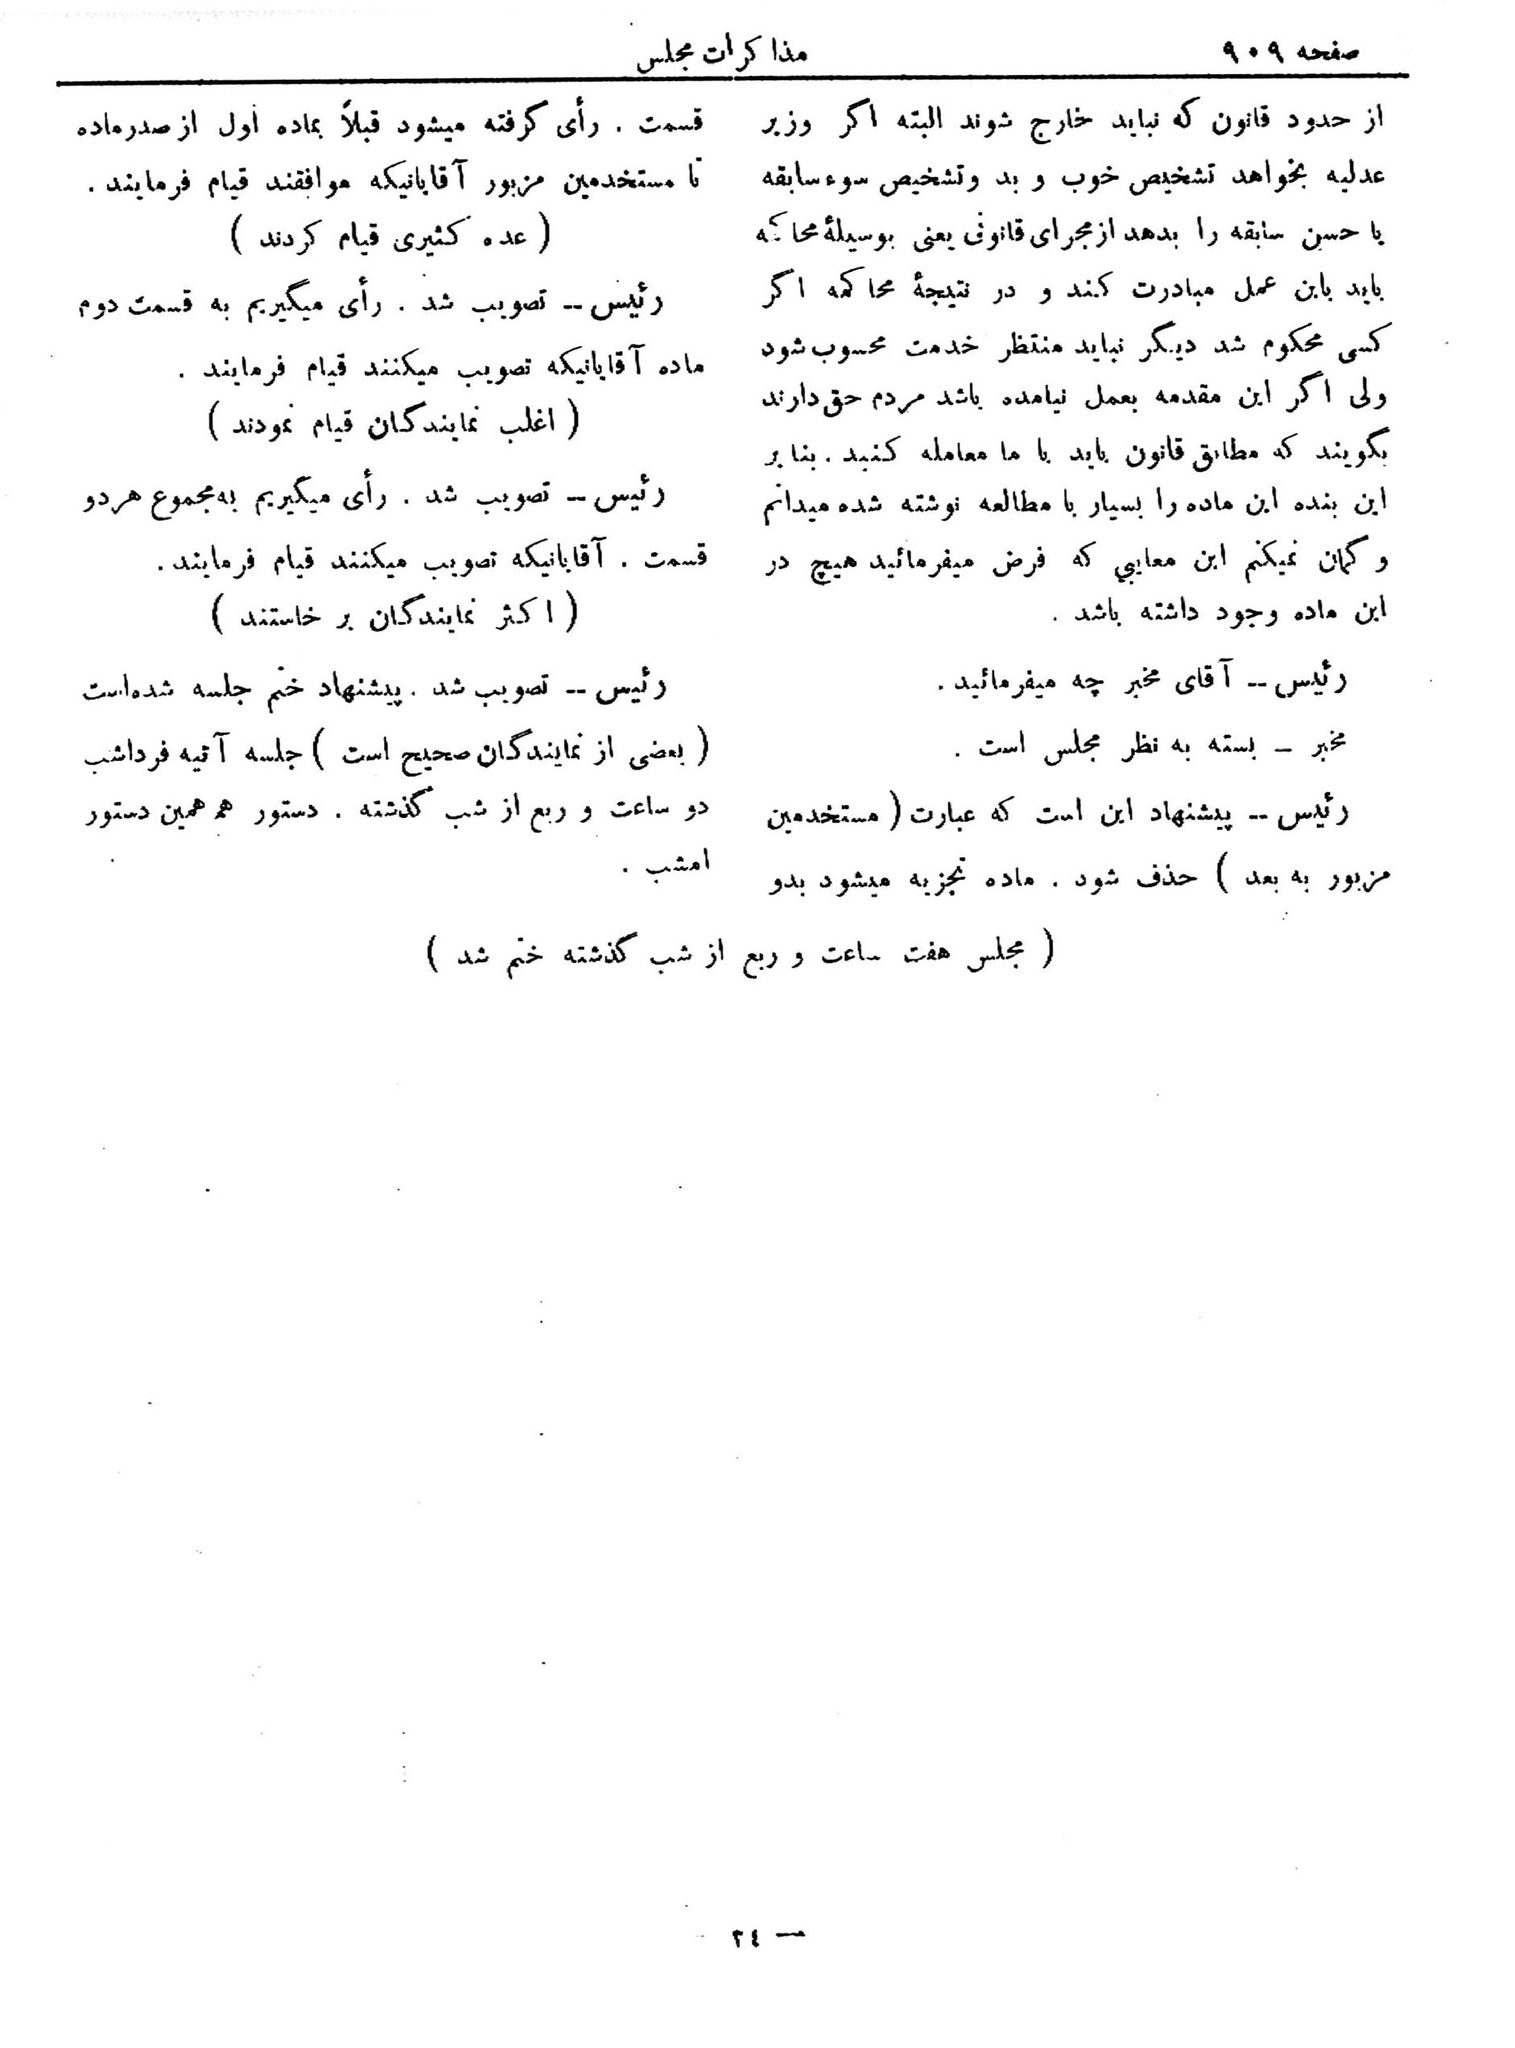 صفحه ۹۰۹
مذاکرات مجلس
از حدود قانون که نباید خارج شوند البته اگر وزیر
عدلیه بخواهد تشخیص خوب و بد و تشخیص سوء سابقه
یا حسن سابقه را بدهد از مجرای قانونی یعنی بوسیلهٔ محاکمه
باید باین عمل مبادرت کند و در نتیجهٔ محاکمه اگر
کسی محکوم شد دیگر نباید منتظر خدمت محسوب شود
ولی اگر این مقدمه بعمل نیامده باشد مردم حق دارند
بگویند که مطابق قانون باید با ما معامله کنید . بنا بر
این بنده این ماده را بسیار با مطالعه نوشته شده میدانم
و گمان نمیکنم این معایبی که فرض میفرمائید هیچ در
این ماده وجود داشته باشد .
رئیس -- آقای مخبر چه میفرمائید .
مخبر - بسته به نظر مجلس است .
رئیس -- پیشنهاد این است که عبارت ( مستخدمین
مزبور به بعد ) حذف شود . ماده تجزیه میشود بدو
قسمت . رأی گرفته میشود قبلاً بماده اول از صدر ماده
تا مستخدمین مزبور آقایانیکه موافقند قیام فرمایند .
( عده کثیری قیام کردند )
رئیس -- تصویب شد . رأی میگیریم به قسمت دوم
ماده آقایانیکه تصویب میکنند قیام فرمایند .
( اغلب نمایندگان قیام نمودند )
رئیس -- تصویب شد . رأی میگیریم به مجموع هر دو
قسمت . آقایانیکه تصویب میکنند قیام فرمایند .
( اکثر نمایندگان بر خاستند )
رئیس -- تصویب شد . پیشنهاد ختم جلسه شده است
( بعضی از نمایندگان صحیح است ) جلسه آتیه فردا شب
دو ساعت و ربع از شب گذشته . دستور هم همین دستور
امشب .
( مجلس هفت ساعت و ربع از شب گذشته ختم شد )
— ٢٤